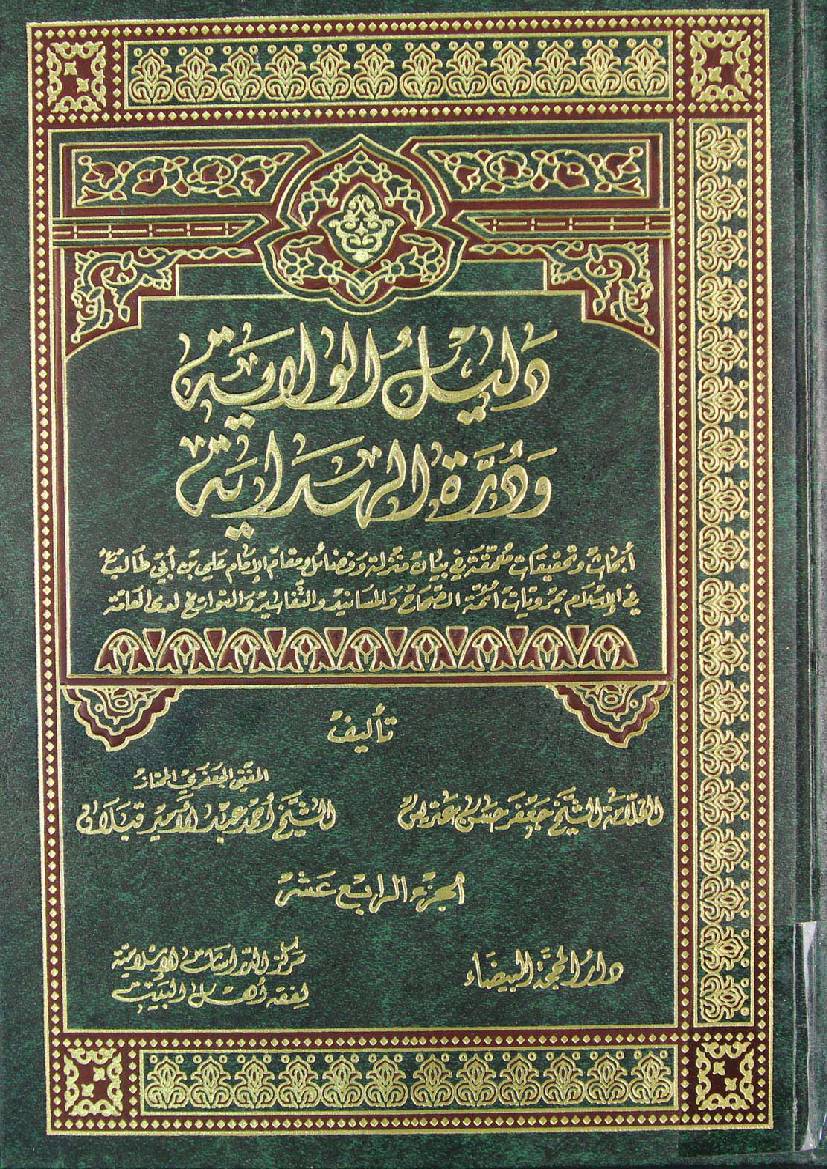 دليل الولاية
ودرة الهداية
أبحاث وتحقيقات معمقة في بيان منزلة وفضائل ومقام الإمام علي بن أبي طالب
في الإسلام بمرويات أئمة الصحاح والمسانيد والتفاسير والتواريخ لدى العامة
تأليف
العلامة الشيخ جعفر حسن عتريس
المفتي الجعفري الممتاز
الشيخ أحمد عبد الأمير قبلان
الجزء الرابع عشر
دار المحجة البيضاء
مركز الدراسات الإسلامية
لفقه أهل البيت